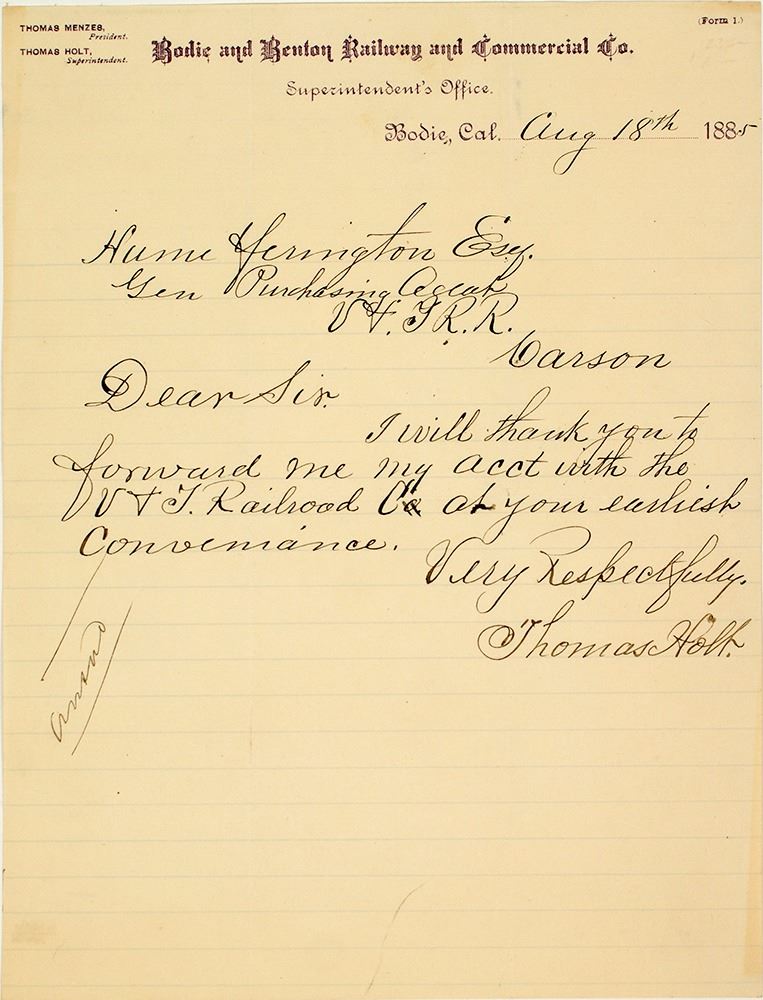 THOMAS MENZES,
President.
THOMAS HOLT,
Superintendent.
(Form 1.)
Bodie and Benton Railway and Commercial Co.
Superintendent's Office.
Bodie, Cal. Aug 18th 1885
Hume Yerington Esq.
Gen Purchasing Agent
V & T R. R.
Carson
Dear Sir.
I will thank you to
forward me my acct with the
V & T. Railroad Co at your earliest
Conveniance.
Very Respectfully.
Thomas Holt.